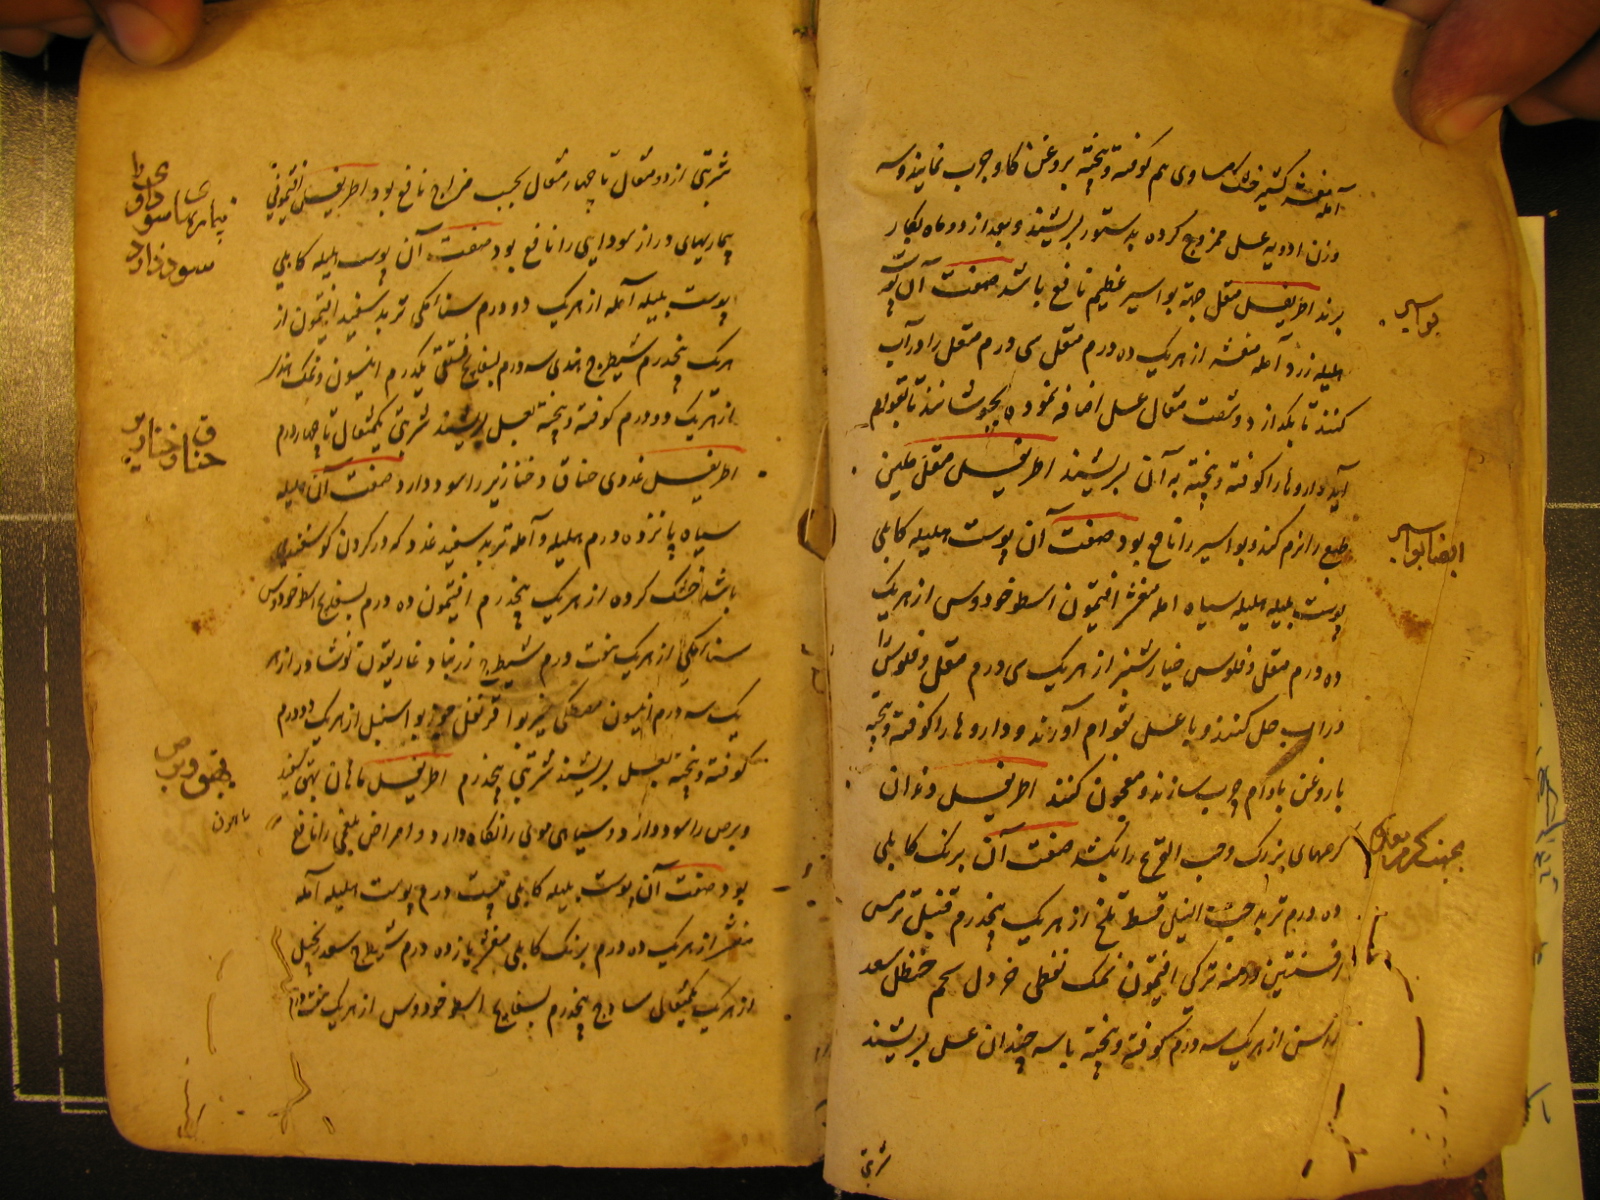 آمله مقشر کشنیز خشک مساوی هم کوفته و پخته بروغن کاو چرب نمایند و سه
وزن ادویه عسل ممزوج کرده بدستور بسریشند و بعد از دو ماه بکار
برند اطریفل مقل جهة بواسیر عظیم نافع باشد صفت آن پوست
بواسیر
هلیله زرد آمله مقشر از هریک ده درم مقل سی درم مقل را در آب
کنند تا بکدازد و شصت مثقال عسل اضافه نموده بجوشانند تا بقوام
آید داروها را کوفته و پخته به آن بسریشند اطریفل مقل ملین
طبع را نرم کند و بواسیر را نافع بود صفت آن پوست هلیله کابلی
ایضا بواسیر
پوست بلیله هلیله سیاه آمله مقشر افتیمون اسطوخودوس از هریک
ده درم مقل و فلوس خیارشنبر از هریک سی درم مقل و فلوس را
در آب حل کنند و با عسل بقوام آورند و داروها را کوفته و پخته
با روغن بادام چرب سازند و معجون کنند اطریفل دیدان
کرمهای بزرک و حب القرع را بکشد صفت آن برنک کابلی
ده درم تربد حب النیل قسط تلخ از هریک پنجدرم قنبیل ترمس
افسنتین درمنه ترکی افتیمون نمک نفطی خردل شحم حنظل سعد
راسن از هریک سه درم کوفته و پخته با سه چندان عسل بسریشند
شربتی
شربتی از دو مثقال تا چهار مثقال بحسب مزاج نافع بود اطریفل افتیمونی
بیماریهای دراز سودایی را نافع بود صفت آن پوست هلیله کابلی
بیماریهای سوداوی
سود دارد
پوست بلیله آمله از هریک دو درم سناء مکی تربد سفید افتیمون از
هریک پنجدرم شیطرج هندی سه درم بسفایج فستقی یکدرم انیسون و نمک هندی
از هریک دو درم کوفته و پخته بعسل بسریشند شربتی یکمثقال تا چهار درم
خناق و خنازیر
اطریفل غددی خناق و خنازیر را سود دارد صفت آن هلیله
سیاه پانزده درم هلیله و آمله تربد سفید غدد که در کردن کوسفند
باشد خشک کرده از هریک پنجدرم افتیمون ده درم بسفایج اسطوخودوس
سناء مکی از هریک هفت درم شیطرج زرنباد غاریقون نوشادر از هر
یک سه درم انیسون مصطکی خیربوا قرنفل جوزبوا سنبل از هریک دو درم
کوفته و پخته بعسل بسریشند شربتی پنجدرم اطریفل ماهان بهق سفید
بهق و برص
و برص را سود دارد و سیاهی موی را نکاه دارد و امراض بلغمی را نافع
بود صفت آن پوست بلیله کابلی بیست درم پوست هلیله آمله
مقشر از هریک ده درم برنک کابلی مقشر یازده درم شیطرج سعد زنجبیل
از هریک یکمثقال ساذج پنجدرم بسفایج اسطوخودوس از هریک هفت درم